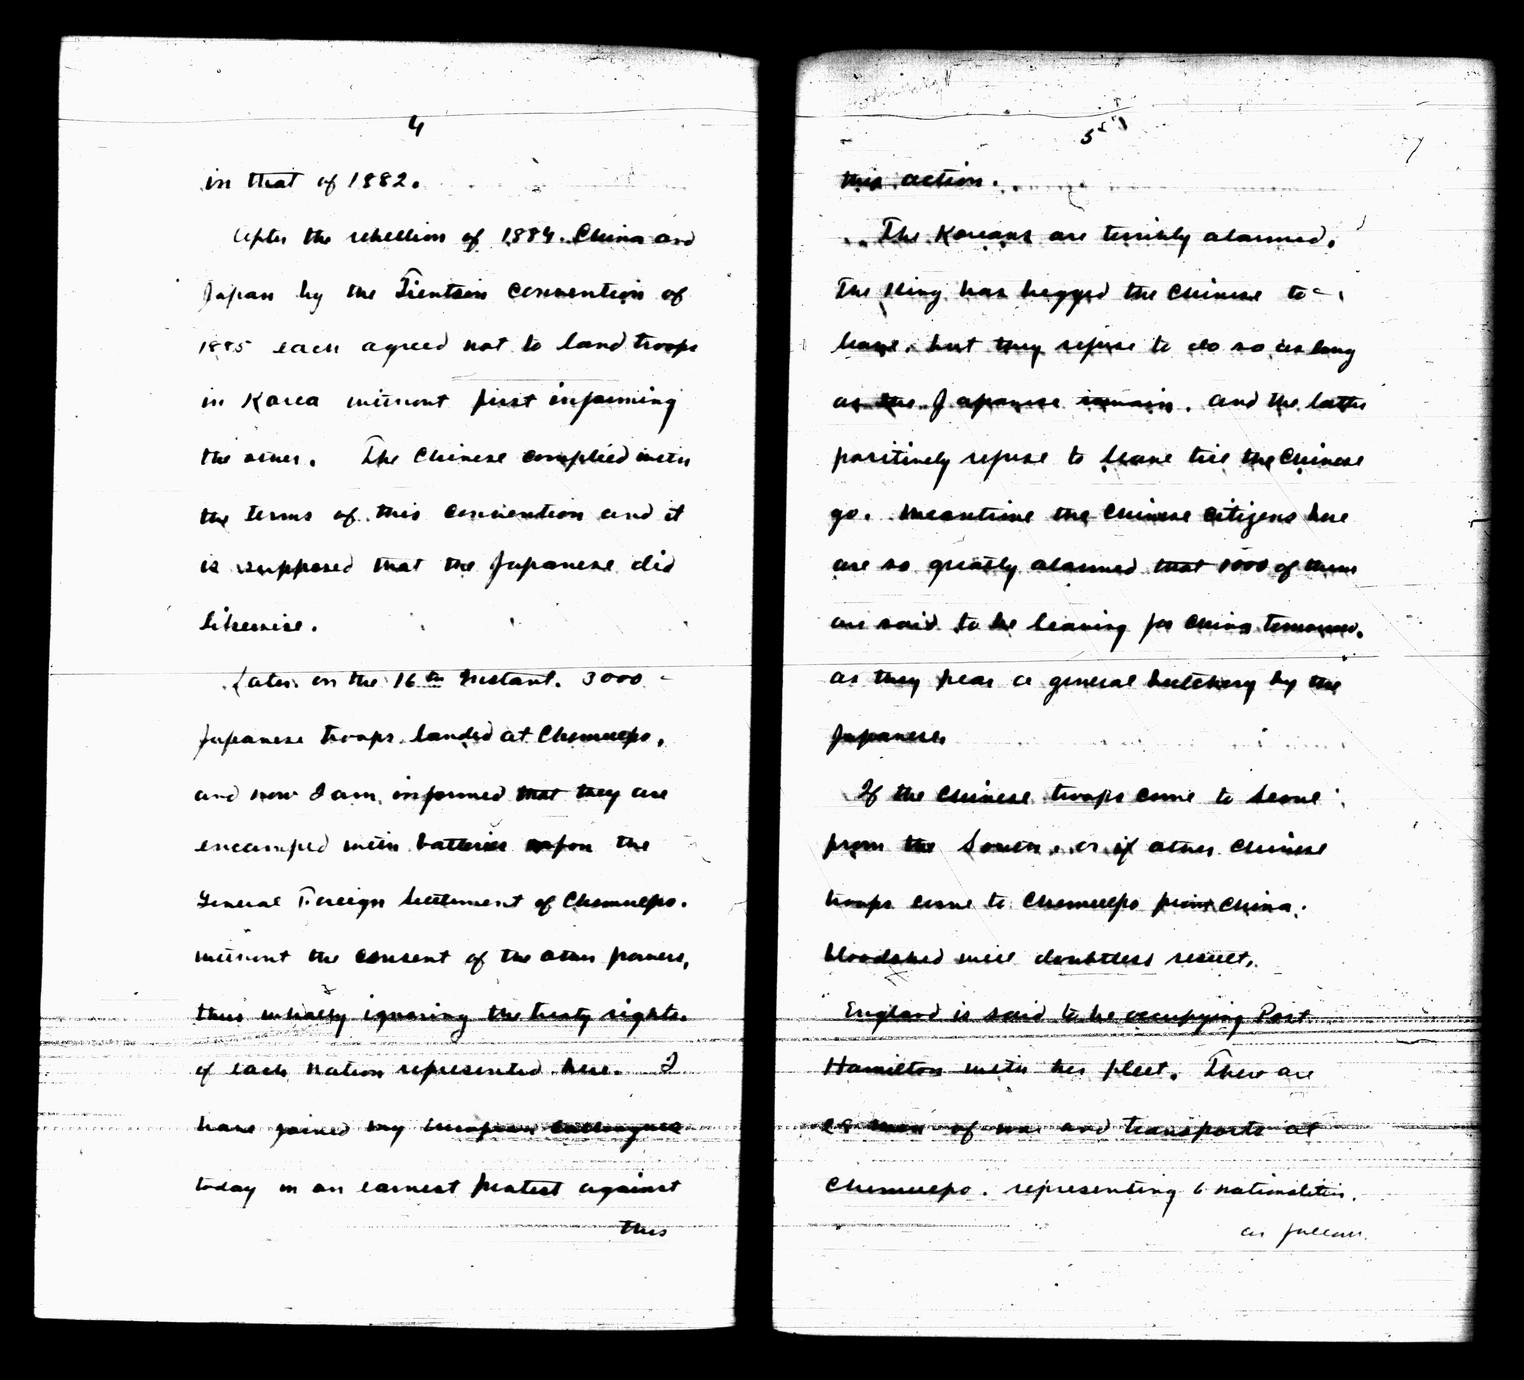 4
in that of 1882.
After the rebellion of 1884. China and
Japan by the Tientsin convention of
1885 each agreed not to land troops
in Korea without first informing
the other. The Chinese complied with
the terms of this convention and it
is supposed that the Japanese did
likewise.
Later on the 16th Instant. 3000 -
Japanese troops landed at Chemulpo,
and now I am informed that they are
encamped with batteries upon the
General Foreign Settlement of Chemulpo.
without the consent of the other powers,
thus wholly ignoring the treaty rights
of each nation represented here. I
have joined my European colleagues
today in an earnest protest against
this
5
this action.
The Koreans are terribly alarmed.
The King has begged the Chinese to -
leave, but they refuse to do so as long
as the Japanese remain, and the latter
positively refuse to leave till the Chinese
go. Meantime the Chinese citizens here
are so greatly alarmed that 1000 of them
are said to be leaving for China tomorrow.
as they fear a general butchery by the
Japanese.
If the Chinese troops come to Seoul
from the South, or if other Chinese
troops come to Chemulpo from China,
bloodshed will doubtless result.
England is said to be occupying Port
Hamilton with her fleet. There are
28 men of war and transports at
Chemulpo. representing 6 nationalities.
as follows.